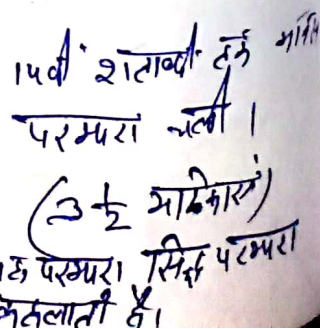 14वीं शताब्दी तक
परम्परा चली ।
(3 1/2
परम्परा सिद्ध परम्परा
कहलाती है।